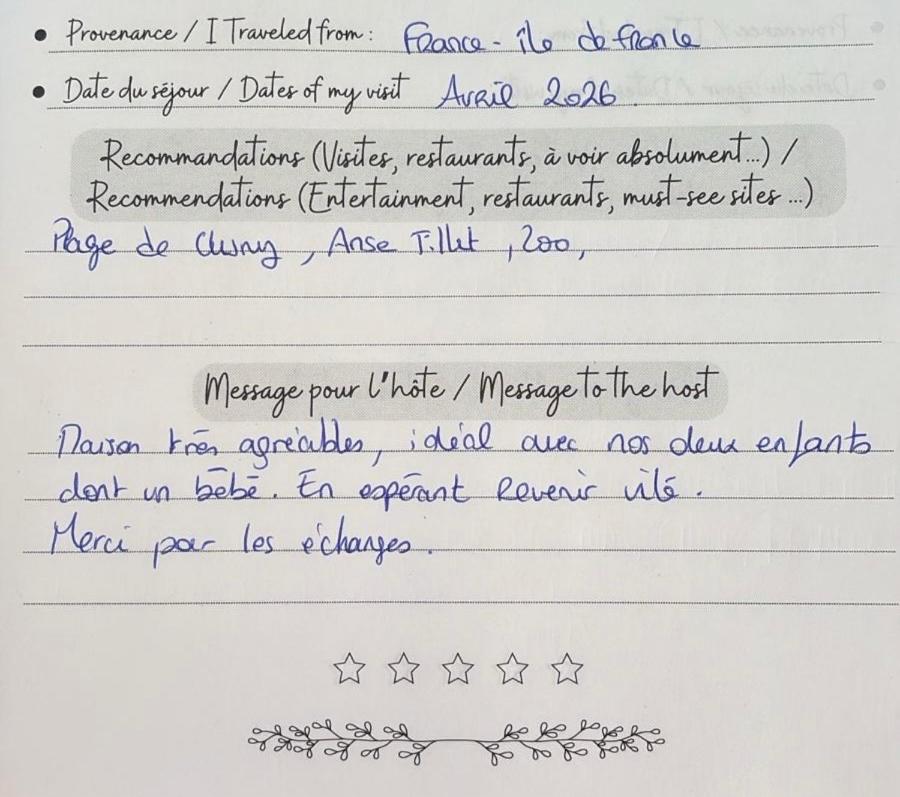 • Provenance / I Traveled from : France - île de france
• Date du séjour / Dates of my visit Avril 2026
Recommandations (Visites, restaurants, à voir absolument...) /
Recommendations (Entertainment, restaurants, must-see sites ...)
Plage de Cluny, Anse Tillet, Zoo,
Message pour l'hôte / Message to the host
Maison très agréables, idéal avec nos deux enfants
dont un bébé. En espérant Revenir vite.
Merci pour les échanges.